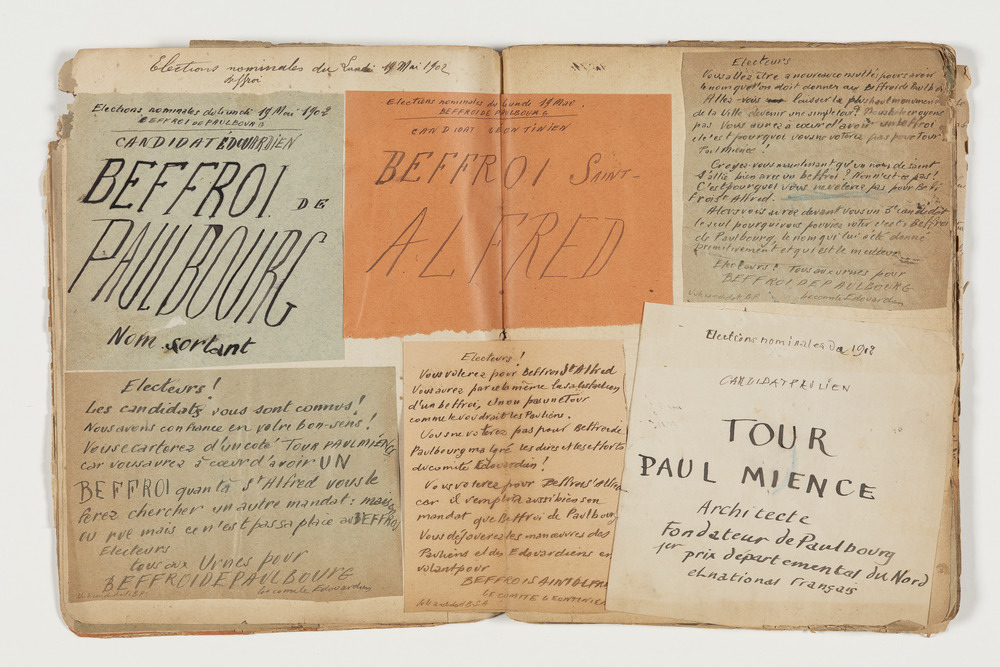 Elections nominales du Lundi 19 Mai 1902
Beffroi
Elections nominales du lundi 19 Mai 1902
BEFFROI DE PAULBOURG
CANDIDAT EDWARDIEN
BEFFROI DE
PAULBOURG
Nom sortant
Electeurs!
Les candidats vous sont connus!
Nous avons confiance en votre bon-sens!
Vous ecarterez d'un coté TOUR PAUL MIENCE
car vous aurez à cœur d'avoir UN
BEFFROI quant à St Alfred vous le
ferez chercher un autre mandat: maison
ou rue mais ce n'est pas sa place au BEFFROI
Electeurs
tous aux Urnes pour
BEFFROI DE PAULBOURG
Le comité Edouardien
Elections nominales du lundi 19 Mai
BEFFROI DE PAULBOURG
CANDIDAT LEONTINIEN
BEFFROI SAINT-
ALFRED
Electeurs!
Vous voterez pour Beffroi St Alfred
Vous aurez par cela même la satisfaction
d'un beffroi, et non pas une Tour
comme le voudrait les Pauliens.
Vous ne voterez pas pour Beffroi de
Paulbourg malgré les dires et les efforts
du comité Edouardien!
Vous voterez pour Beffroi St Alfred
car il remplira aussi bien son
mandat que Beffroi de Paulbourg
Vous déjouerez les manœuvres des
Pauliens et des Edouardiens en
votant pour
BEFFROI SAINT ALFRED
LE COMITE LEONTINIEN
Electeurs
Vous allez être a nouveau consultés pour savoir
le nom que l'on doit donner au Beffroi de Paulbourg
Allez-vous laisser le plus haut monument
de la Ville devenir une simple tour?
pas Vous aurez à cœur d'avoir un beffroi
et c'est pourquoi vous ne voterez pas pour Tour
Paul Mience!
Croyez-vous maintenant qu'un nom de saint
s'allie bien avec un beffroi? Non n'est-ce pas!
C'est pourquoi vous ne voterez pas pour Bef-
froi St Alfred.
Alors vous aurez devant vous un 3e candidat
le seul pour qui vous pouviez voter c'est Beffroi
de Paulbourg, le nom qui lui a été donné
primitivement et qui est le meilleur
Electeurs! Tous aux urnes pour
BEFFROI DE PAULBOURG
Le comité Edouardien
Elections nominales de 1902
CANDIDAT PAULIEN
TOUR
PAUL MIENCE
Architecte
Fondateur de Paulbourg
1er prix départemental du Nord
et national Français